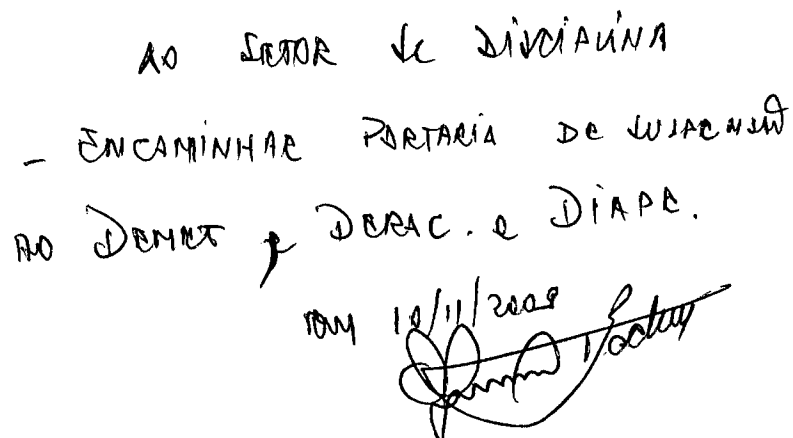 AO SETOR de DISCIPLINA
- ENCAMINHAR PORTARIA DE SUSPENSÃO
AO DEMET, DERAC. e DIAPE.
em 10/11/2008